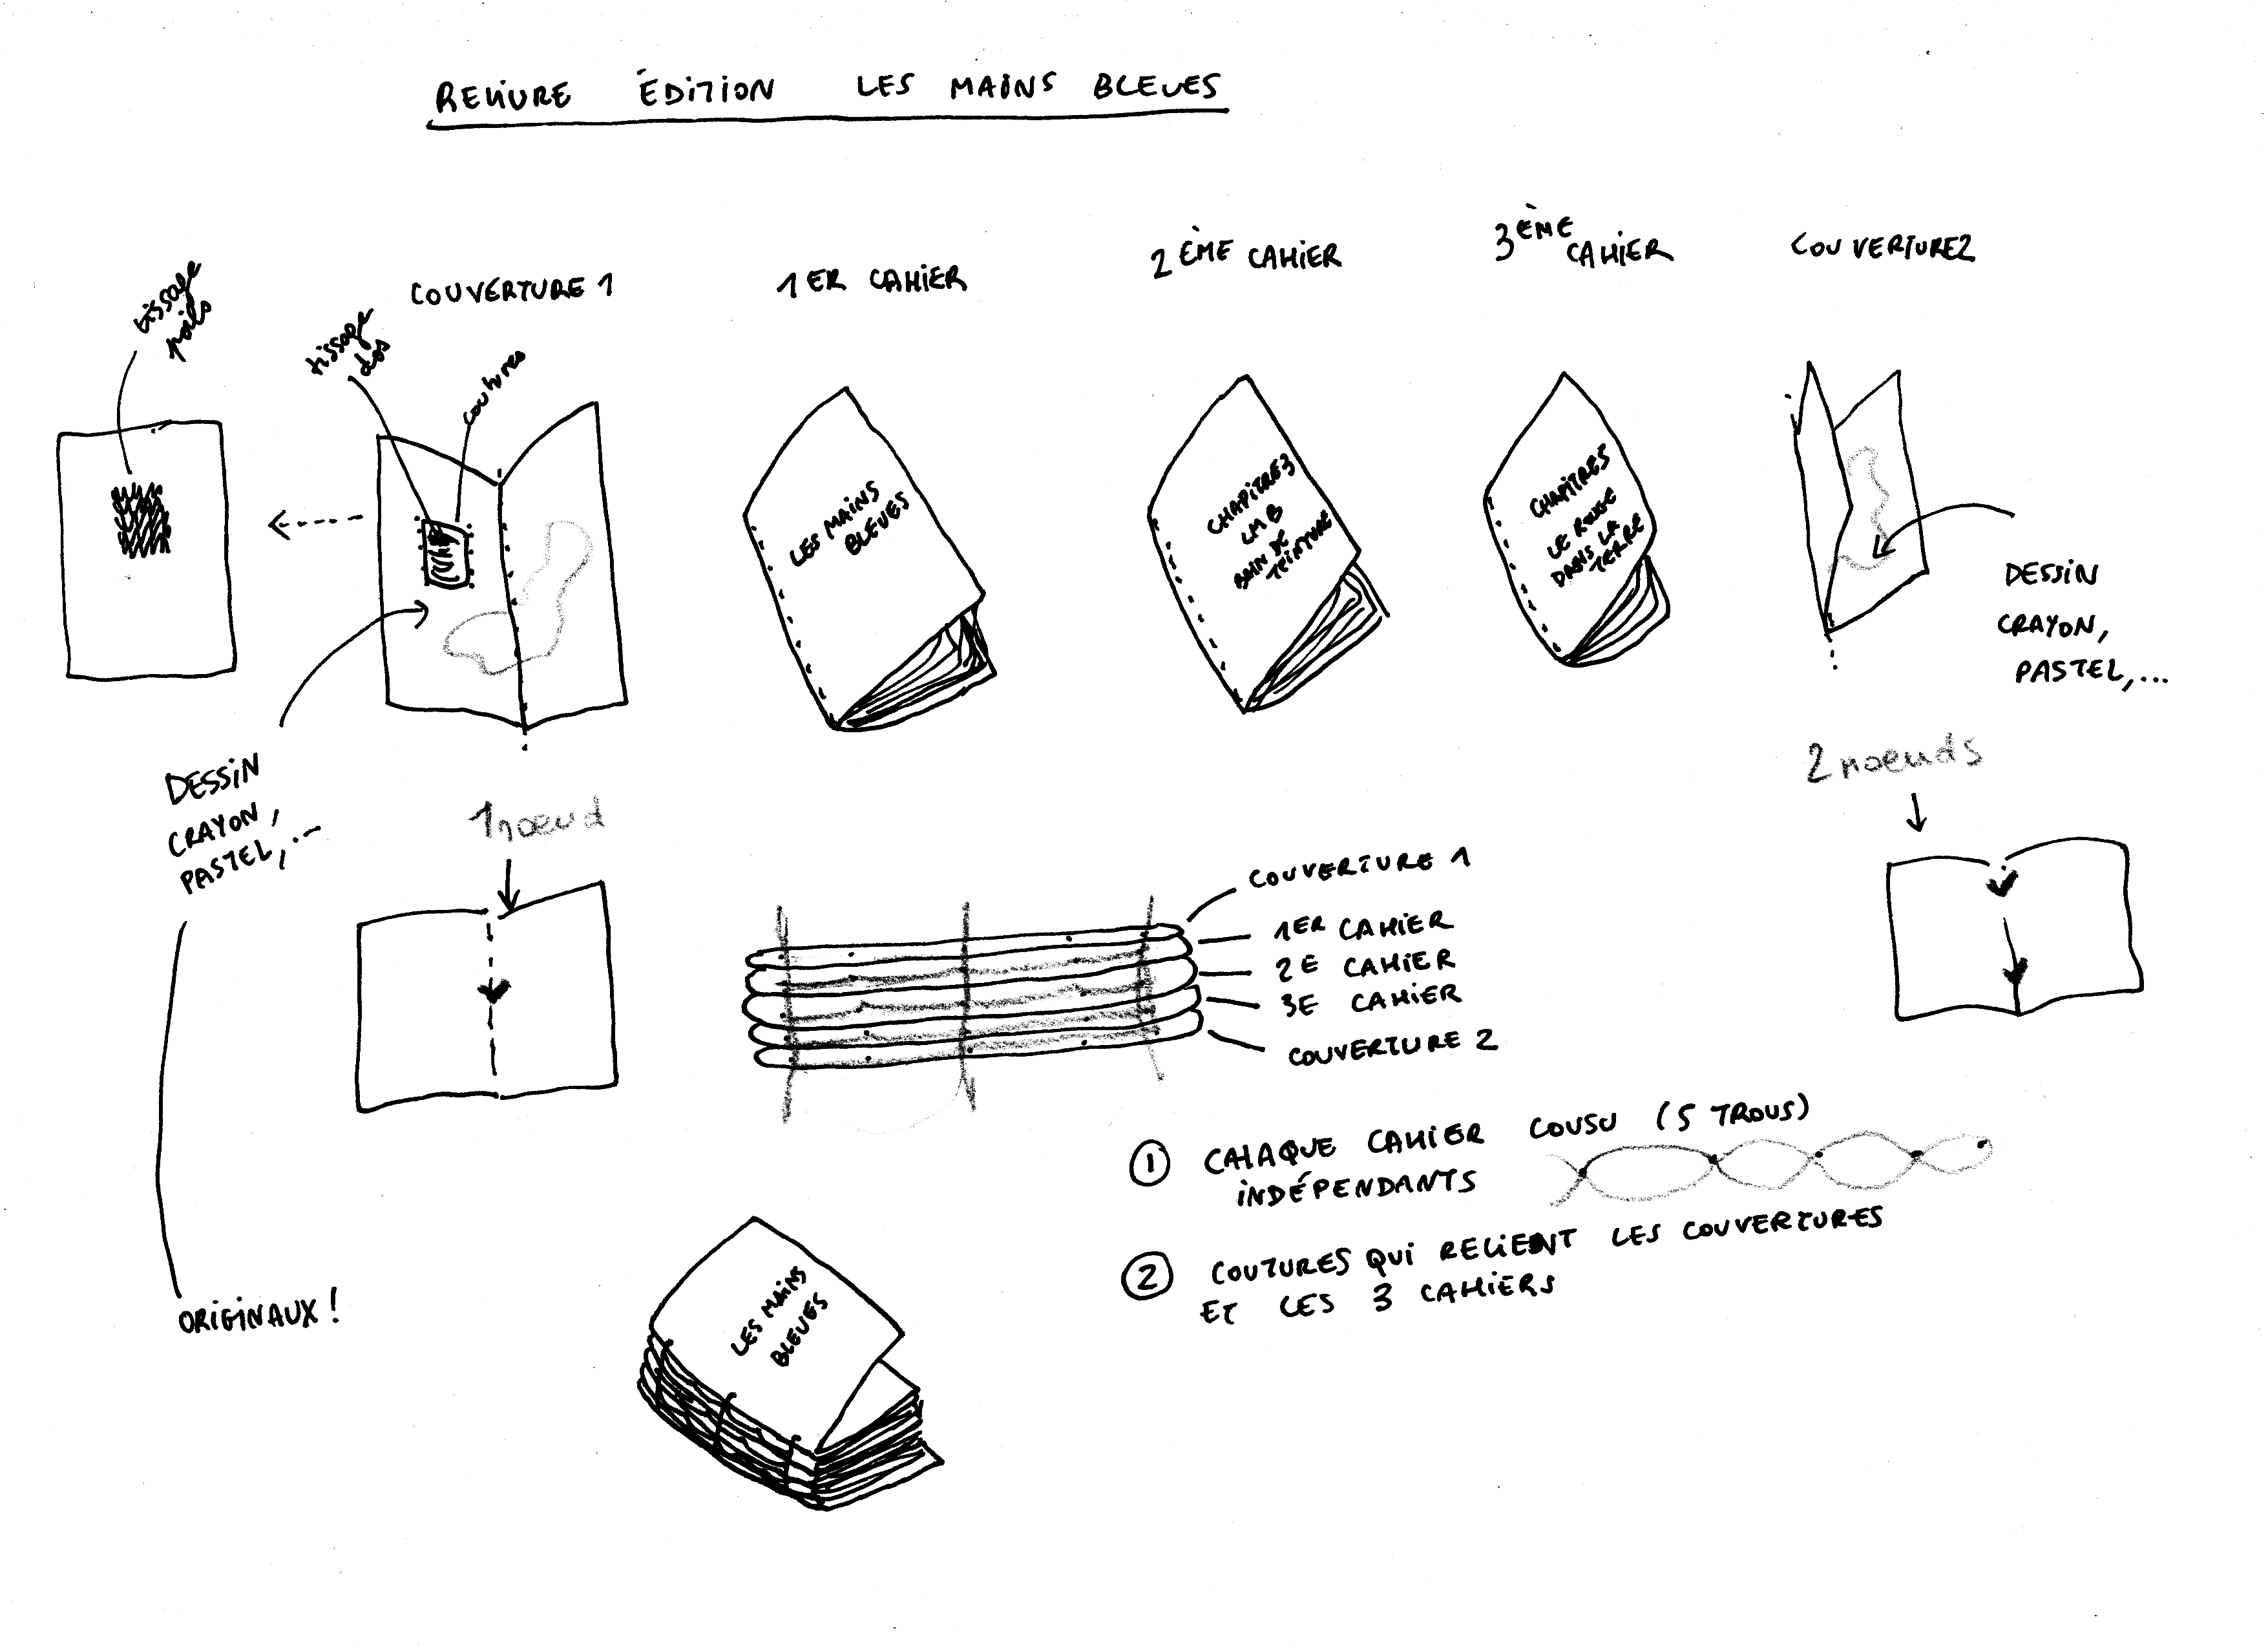 RELIURE ÉDITION LES MAINS BLEUES
tissage
poils
COUVERTURE 1
1ER CAHIER
2ÈME CAHIER
3ÈME
CAHIER
COUVERTURE2
tissage
dos
coutures
LES MAINS
BLEUES
CHAPITRE3
LMB
BAIN DE
TEINTURE
CHAPITRE5
LE ROUGE
DANS LA
TERRE
DESSIN
CRAYON,
PASTEL,...
DESSIN
CRAYON,
PASTEL,...
ORIGINAUX !
1 noeud
2 noeuds
COUVERTURE 1
1ER CAHIER
2E CAHIER
3E CAHIER
COUVERTURE 2
1 CHAQUE CAHIER COUSU (5 TROUS)
INDÉPENDANTS
2 COUTURES QUI RELIENT LES COUVERTURES
ET LES 3 CAHIERS
LES MAINS
BLEUES